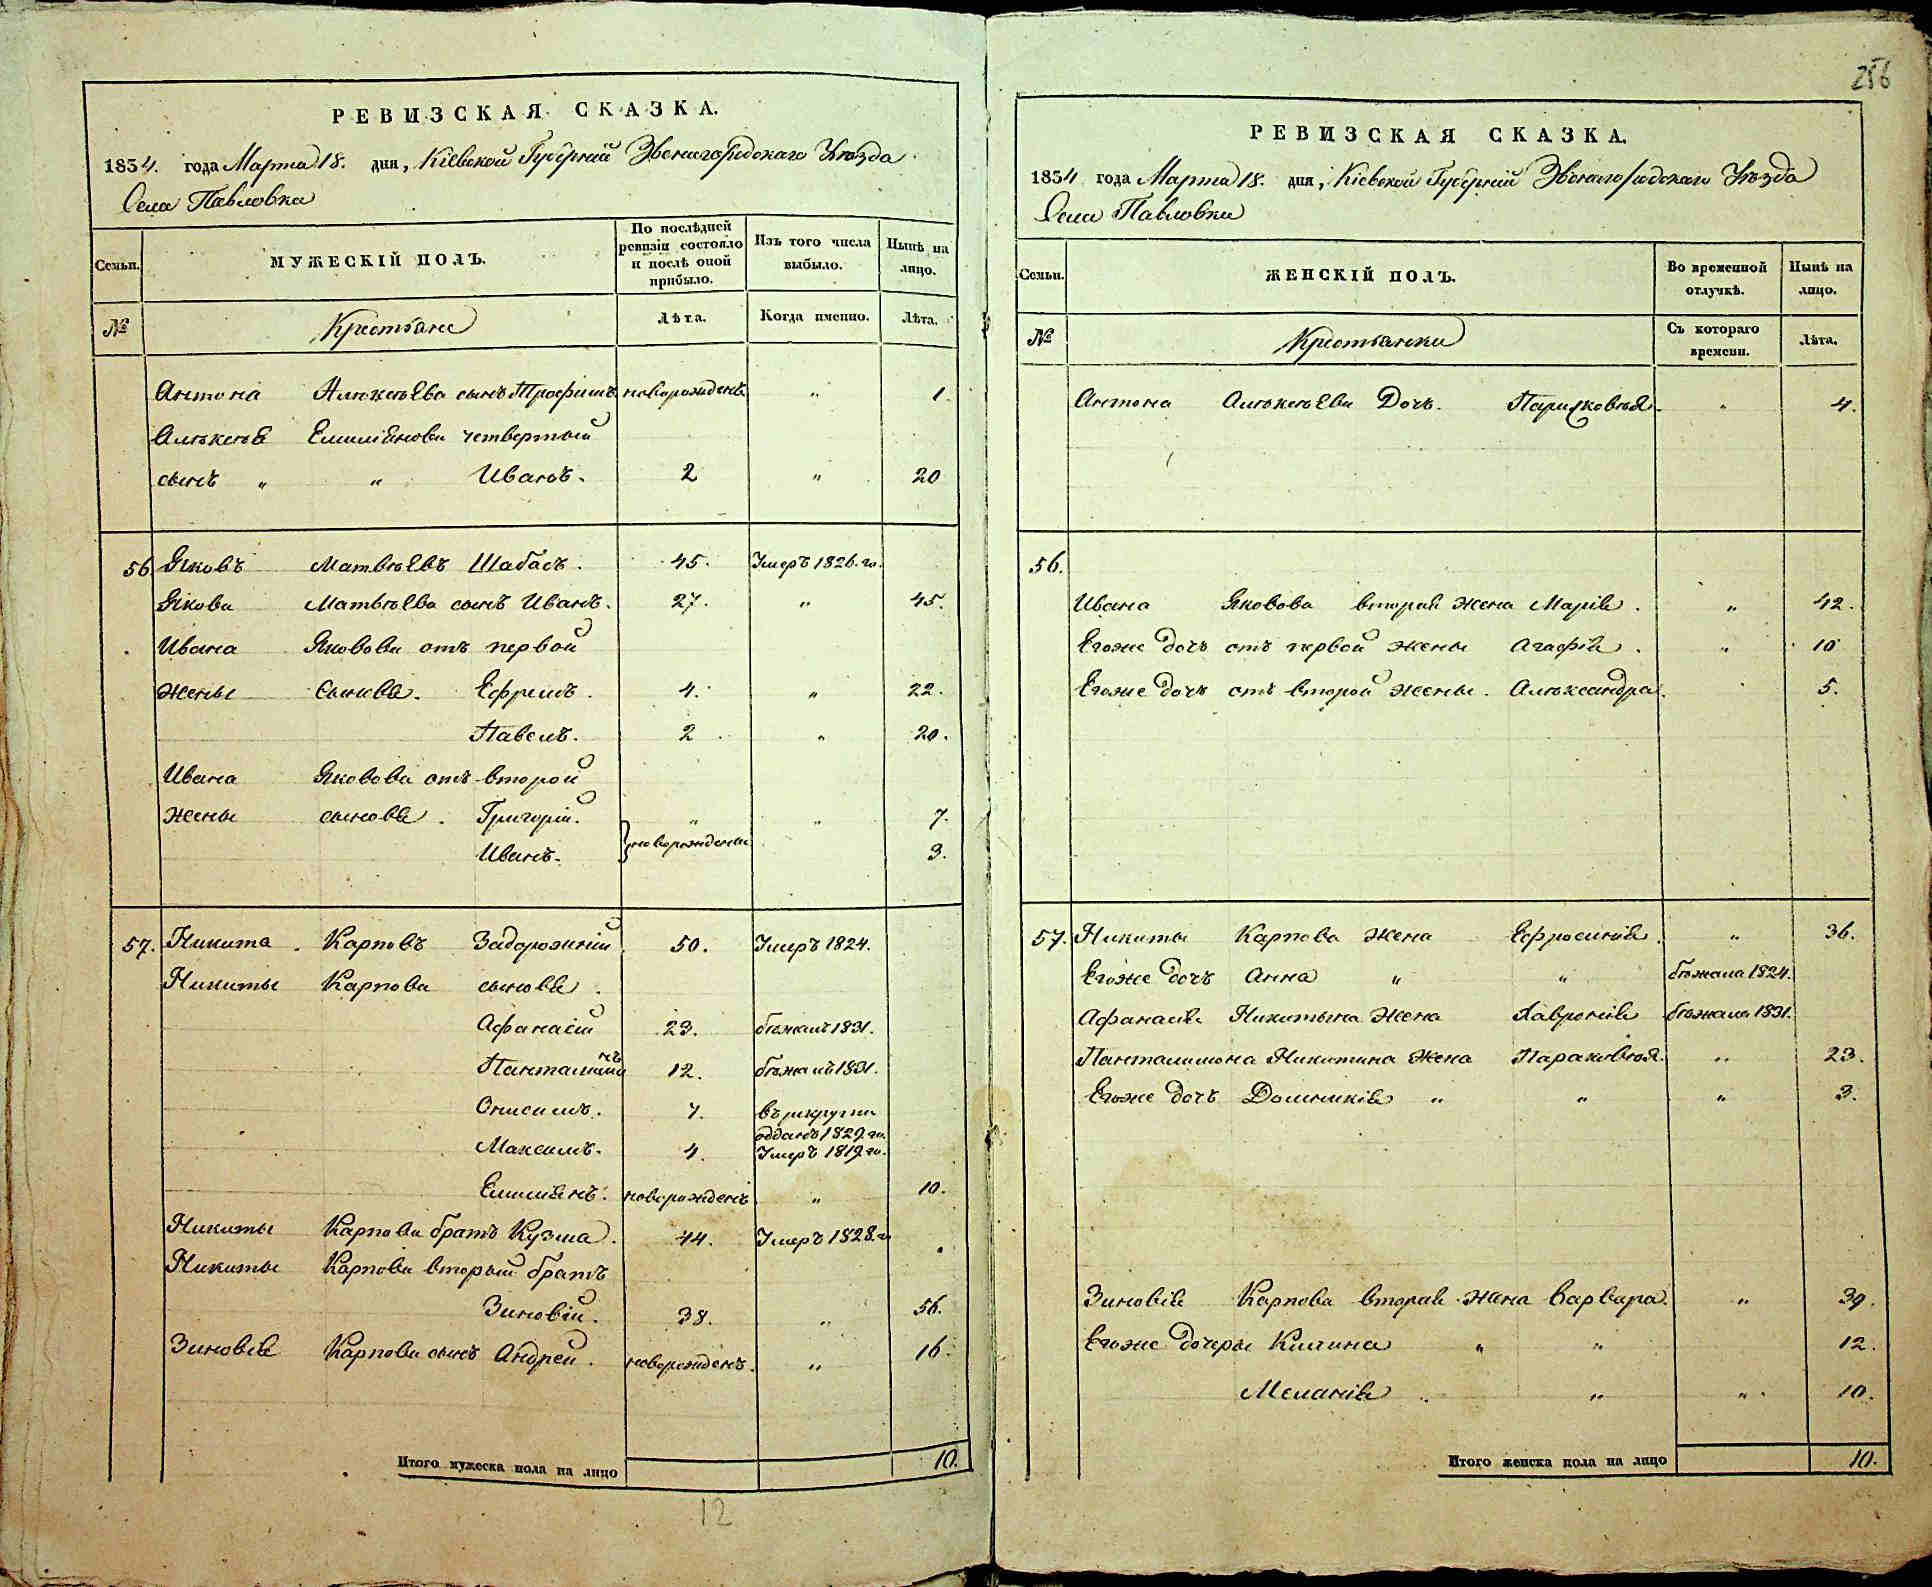 256
РЕВИЗСКАЯ СКАЗКА.
1834. года Марта 18. дня, Кіевской Губерніи Звенигородскаго Уѣзда
Села Павловки
Семьи.
МУЖЕСКІЙ ПОЛЪ.
По послѣдней ревизіи состояло и послѣ оной прибыло.
Изъ того числа выбыло.
Нынѣ на лицо.
№
Крестьяне
Лѣта.
Когда именно.
Лѣта.
Антона Алексѣева сынъ Трофимъ новорожденъ " 1.
Алексѣя Емиліянова четвертый
сынъ " " Иванъ. 2 " 20
56 Яковъ Матвѣевъ Шабасъ. 45. Умеръ 1826. го.
Якова Матвѣева сынъ Иванъ. 27. " 45.
Ивана Яковова отъ первой
жены сыновья. Ефремъ. 4. " 22.
Павелъ. 2 " 20.
Ивана Яковова отъ второй
жены сыновья. Григорій. " " 7.
Иванъ. новорождены 3.
57. Никита Карповъ Задорожній 50. Умеръ 1824.
Никиты Карпова сыновья.
Афанасій 23. бѣжалъ 1831.
Панталимонъ 12. бѣжалъ 1831.
Онисимъ. 7. въ рекруты
отданъ 1829 го.
Максимъ. 4. Умеръ 1819 го.
Емиліянъ. новорожденъ " 10.
Никиты Карпова братъ Кузма. 44. Умеръ 1828. г
Никиты Карпова вторый братъ
Зиновій. 38. " 56.
Зиновія Карпова сынъ Андрей. новорожденъ. " 16.
Итого мужеска пола на лицо 10.
12
РЕВИЗСКАЯ СКАЗКА.
1834 года Марта 18. дня, Кіевской Губерніи Звенигородскаго Уѣзда
Села Павловки
Семьи.
ЖЕНСКІЙ ПОЛЪ.
Во временной отлучкѣ.
Нынѣ на лицо.
№
Крестьянки
Съ котораго времени.
Лѣта.
Антона Алексѣева Дочь. Парасковѣя. " 4.
56.
Ивана Яковова вторая жена Марія. " 42.
Егоже дочь отъ первой жены Агафія. " 10
Егоже дочь отъ второй жены. Александра. 5.
57. Никиты Карпова жена Ефросинія. " 36.
Егоже дочь Анна " " бѣжала 1824.
Афанасія Никитына жена Хавронія бѣжала 1831.
Панталимона Никитина жена Парасковѣя. " 23.
Егоже дочь Домникія " " " 3.
Зиновія Карпова вторая жена Варвара. " 39.
Егоже дочеры Килина " " 12.
Меланія " " 10.
Итого женска пола на лицо 10.